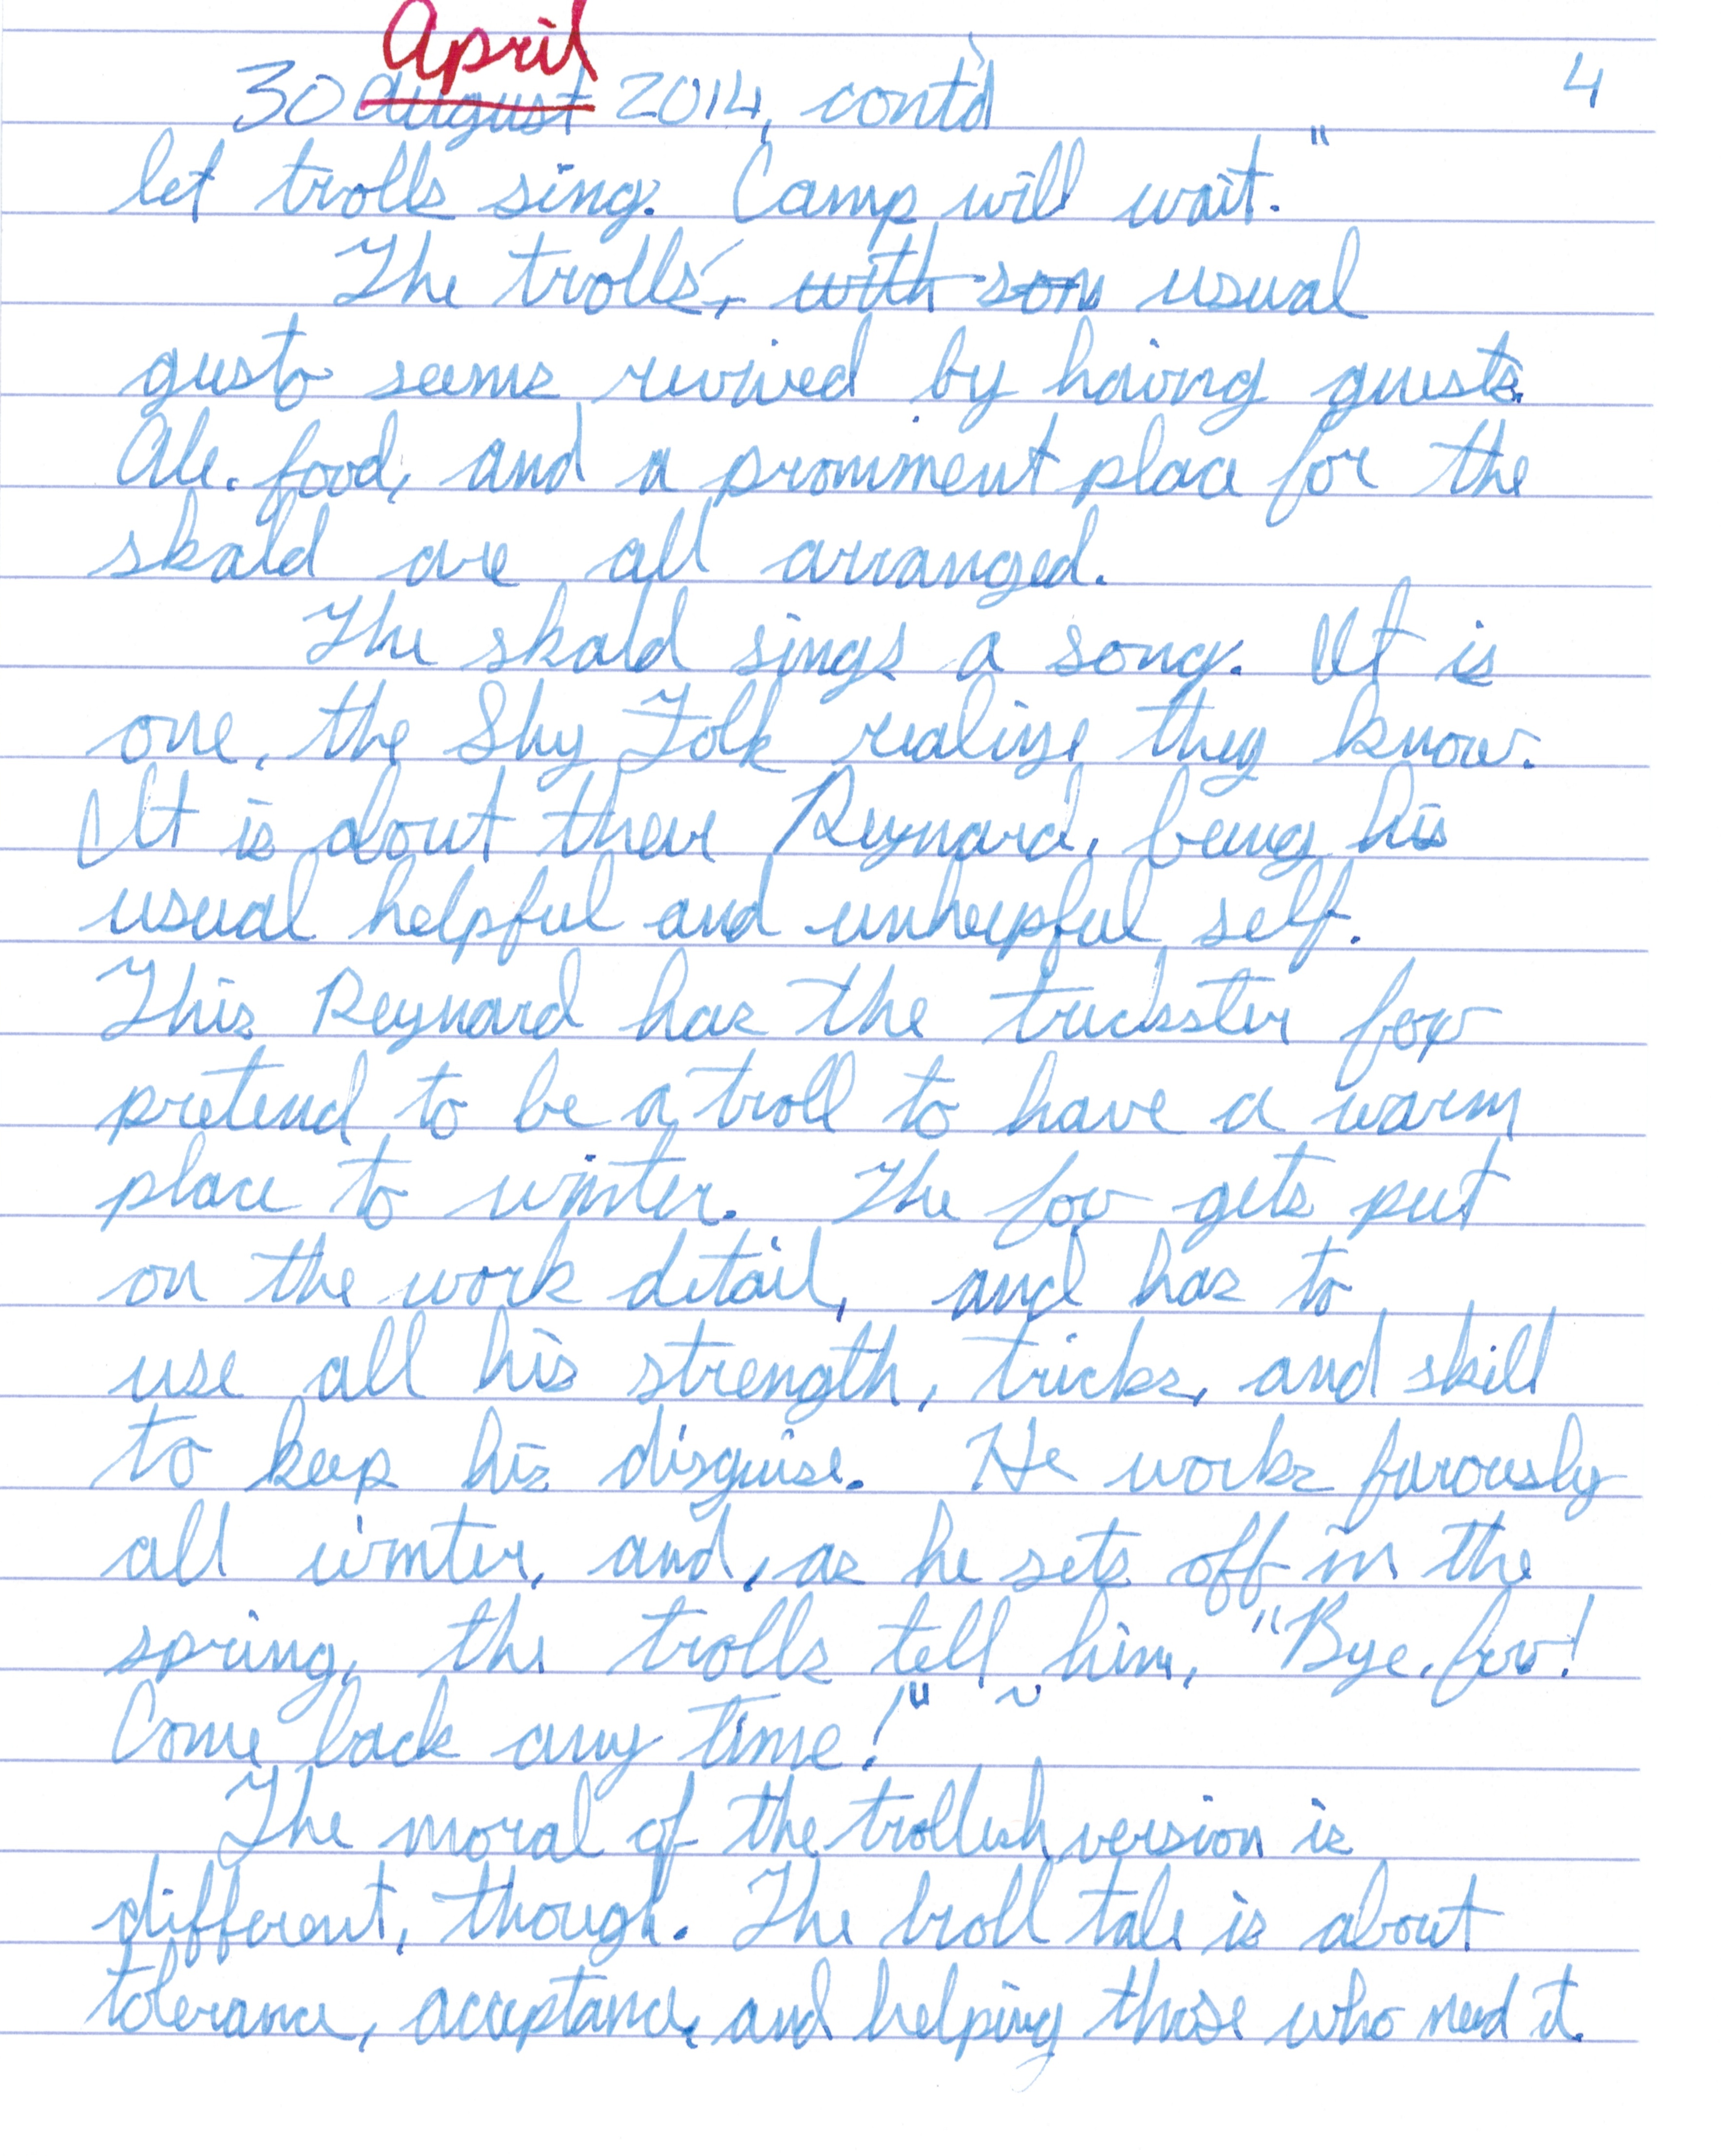 April
30 August 2014, cont'd 4
let trolls sing. Camp will wait."
The trolls', with som usual
gusto seems revived by having guests.
Ale, food, and a prominent place for the
skald are all arranged.
The skald sings a song. It is
one, the Shy Folk realize, they know.
It is about there Reynard, being his
usual helpful and unhelpful self.
This Reynard has the trickster fox
pretend to be a troll to have a warm
place to winter. The fox gets put
on the work detail, and has to
use all his strength, tricks, and skill
to keep his disguise. He works furously
all winter, and, as he sets off in the
spring, the trolls tell him, "Bye, fox!
Come back any time!" ~
The moral of the trollish version is
different, though. The troll tale is about
tolerance, acceptance, and helping those who need it.